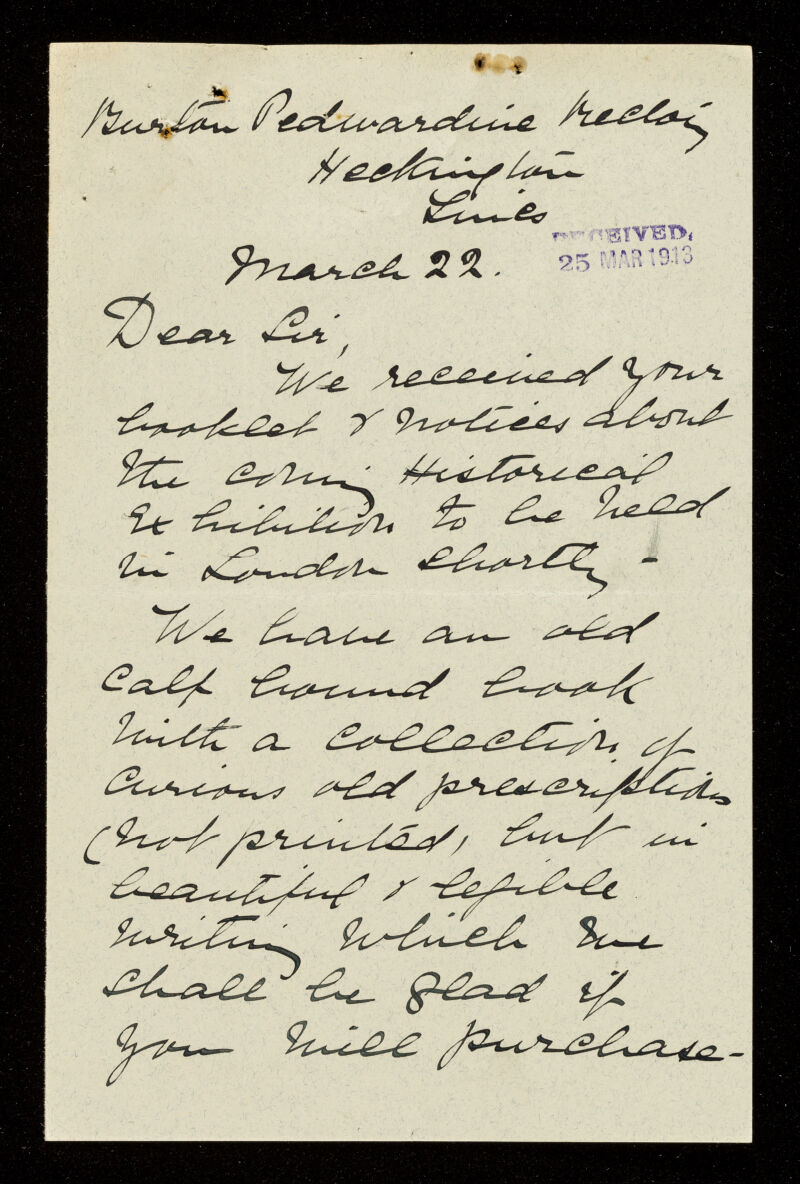 Burton Pedwardine Rectory
Heckington
Lincs
RECEIVED.
25 MAR 1913
March 22.
Dear Sir,
We received your
booklet & notices about
the coming Historical
Exhibition to be held
in London shortly -
We have an old
calf bound book
with a collection of
curious old prescriptions
(not printed, but in
beautiful & legible
writing which we
shall be glad if
you will purchase -